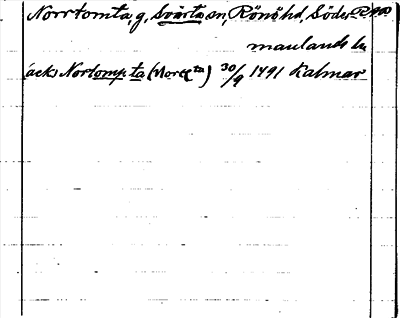 Norrtomta, g, Svärta sn, Rönö hd, Söder-
manlands l.
(ack) Nortompta 30/9 1491 Kalmar